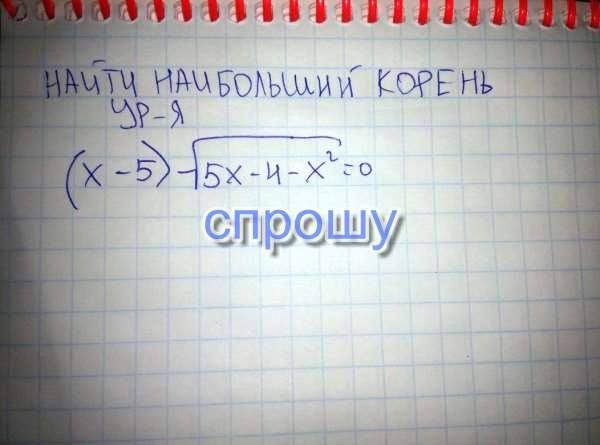 НАЙТИ НАИБОЛЬШИЙ КОРЕНЬ
УР-Я
(x-5)-√5x-4-x²=0
спрошу